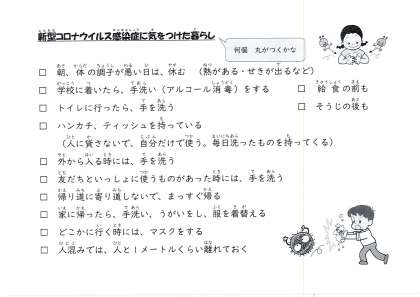 新型コロナウイルス感染症に気をつけた暮らし
何個　丸がつくかな
□ 朝、体の調子が悪い日は、休む　（熱がある・せきが出るなど）
□ 学校に着いたら、手洗い（アルコール消毒）をする　□ 給食の前も
□ トイレに行ったら、手を洗う　□ そうじの後も
□ ハンカチ、ティッシュを持っている
（人に貸さないで、自分だけで使う。毎日洗ったものを持ってくる）
□ 外から入る時には、手を洗う
□ 友だちといっしょに使うものがあった時には、手を洗う
□ 帰り道に寄り道しないで、まっすぐ帰る
□ 家に帰ったら、手洗い、うがいをし、服を着替える
□ どこかに行く時には、マスクをする
□ 人混みでは、人と１メートルくらい離れておく